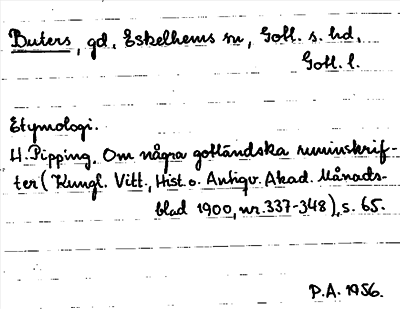 Buters, gd, Eskelhems sn, Gotl. s. hd,
Gotl. l.
Etymologi.
H. Pipping, Om några gotländska runinskrif-
ter (Kungl. Vitt., Hist. o. Antiqv. Akad. Månads-
blad 1900, nr. 337-348), s. 65.
P.A. 1956.